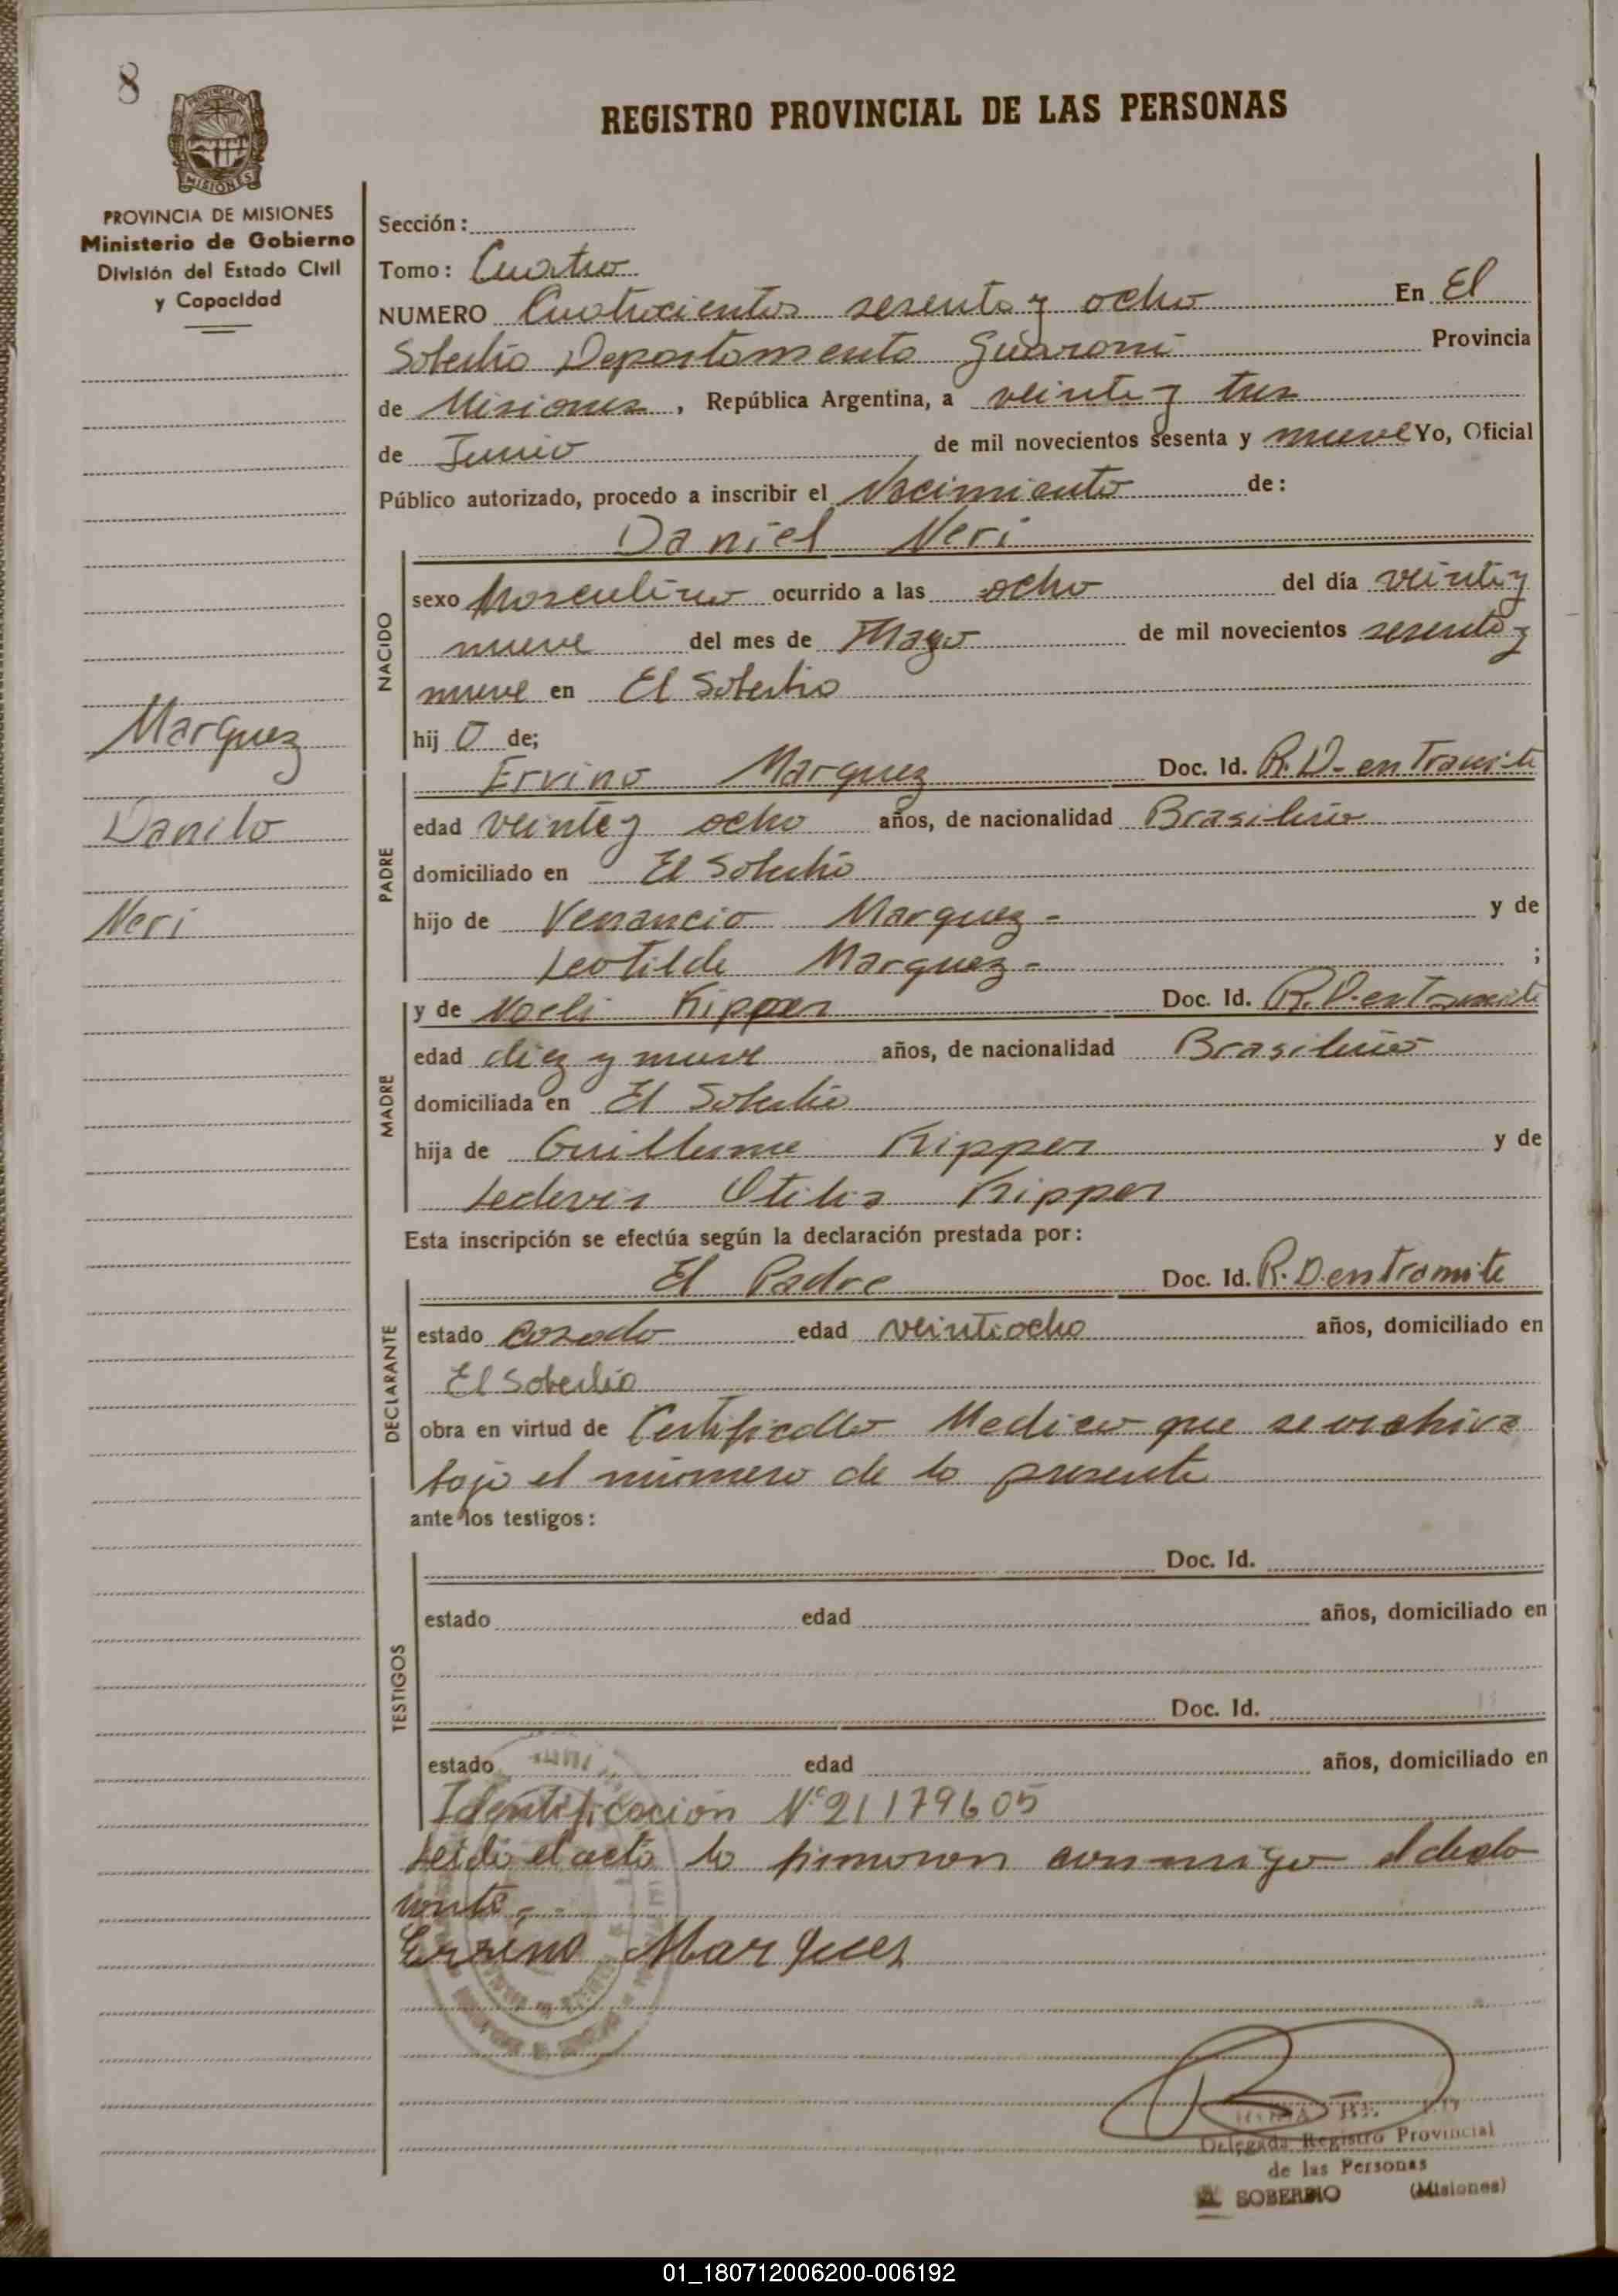 8
PROVINCIA DE MISIONES
MISIONES
PROVINCIA DE MISIONES
Ministerio de Gobierno
División del Estado Civil
y Capacidad
Marquez
Danilo
Neri
REGISTRO PROVINCIAL DE LAS PERSONAS
Sección:
Tomo: Cuatro
NUMERO Cuatrocientos sesenta y ocho En El
Soberbio Departamento Guarani Provincia
de Misiones, República Argentina, a veinte y tres
de Junio de mil novecientos sesenta y nueve Yo, Oficial
Público autorizado, procedo a inscribir el Nacimiento de:
Daniel Neri
NACIDO
sexo Masculino ocurrido a las ocho del día veinte y
nueve del mes de Mayo de mil novecientos sesenta y
nueve en El Soberbio
hij o de;
PADRE
Ervino Marquez Doc. Id. R.D- en Tramite
edad veinte y ocho años, de nacionalidad Brasileño
domiciliado en El Soberbio
hijo de Venancio Marquez - y de
Leotilde Marquez - ;
MADRE
y de Noeli Kipper Doc. Id. R.D. en Tramite
edad diez y nueve años, de nacionalidad Brasileño
domiciliada en El Soberbio
hija de Guillerme Kipper y de
Otilia Kipper
Esta inscripción se efectúa según la declaración prestada por:
DECLARANTE
El Padre Doc. Id. R.D. en Tramite
estado casado edad veintiocho años, domiciliado en
El Soberbio
obra en virtud de Certificado Medico que se archiva
bajo el número de la presente
ante los testigos:
TESTIGOS
Doc. Id.
estado edad años, domiciliado en
Doc. Id.
estado edad años, domiciliado en
Identificación N° 21179605
Leida el acta la firmaron conmigo el decla
rante.-
Marques
Delegada Registro Provincial
de las Personas
EL SOBERBIO (Misiones)
01_180712006200-006192